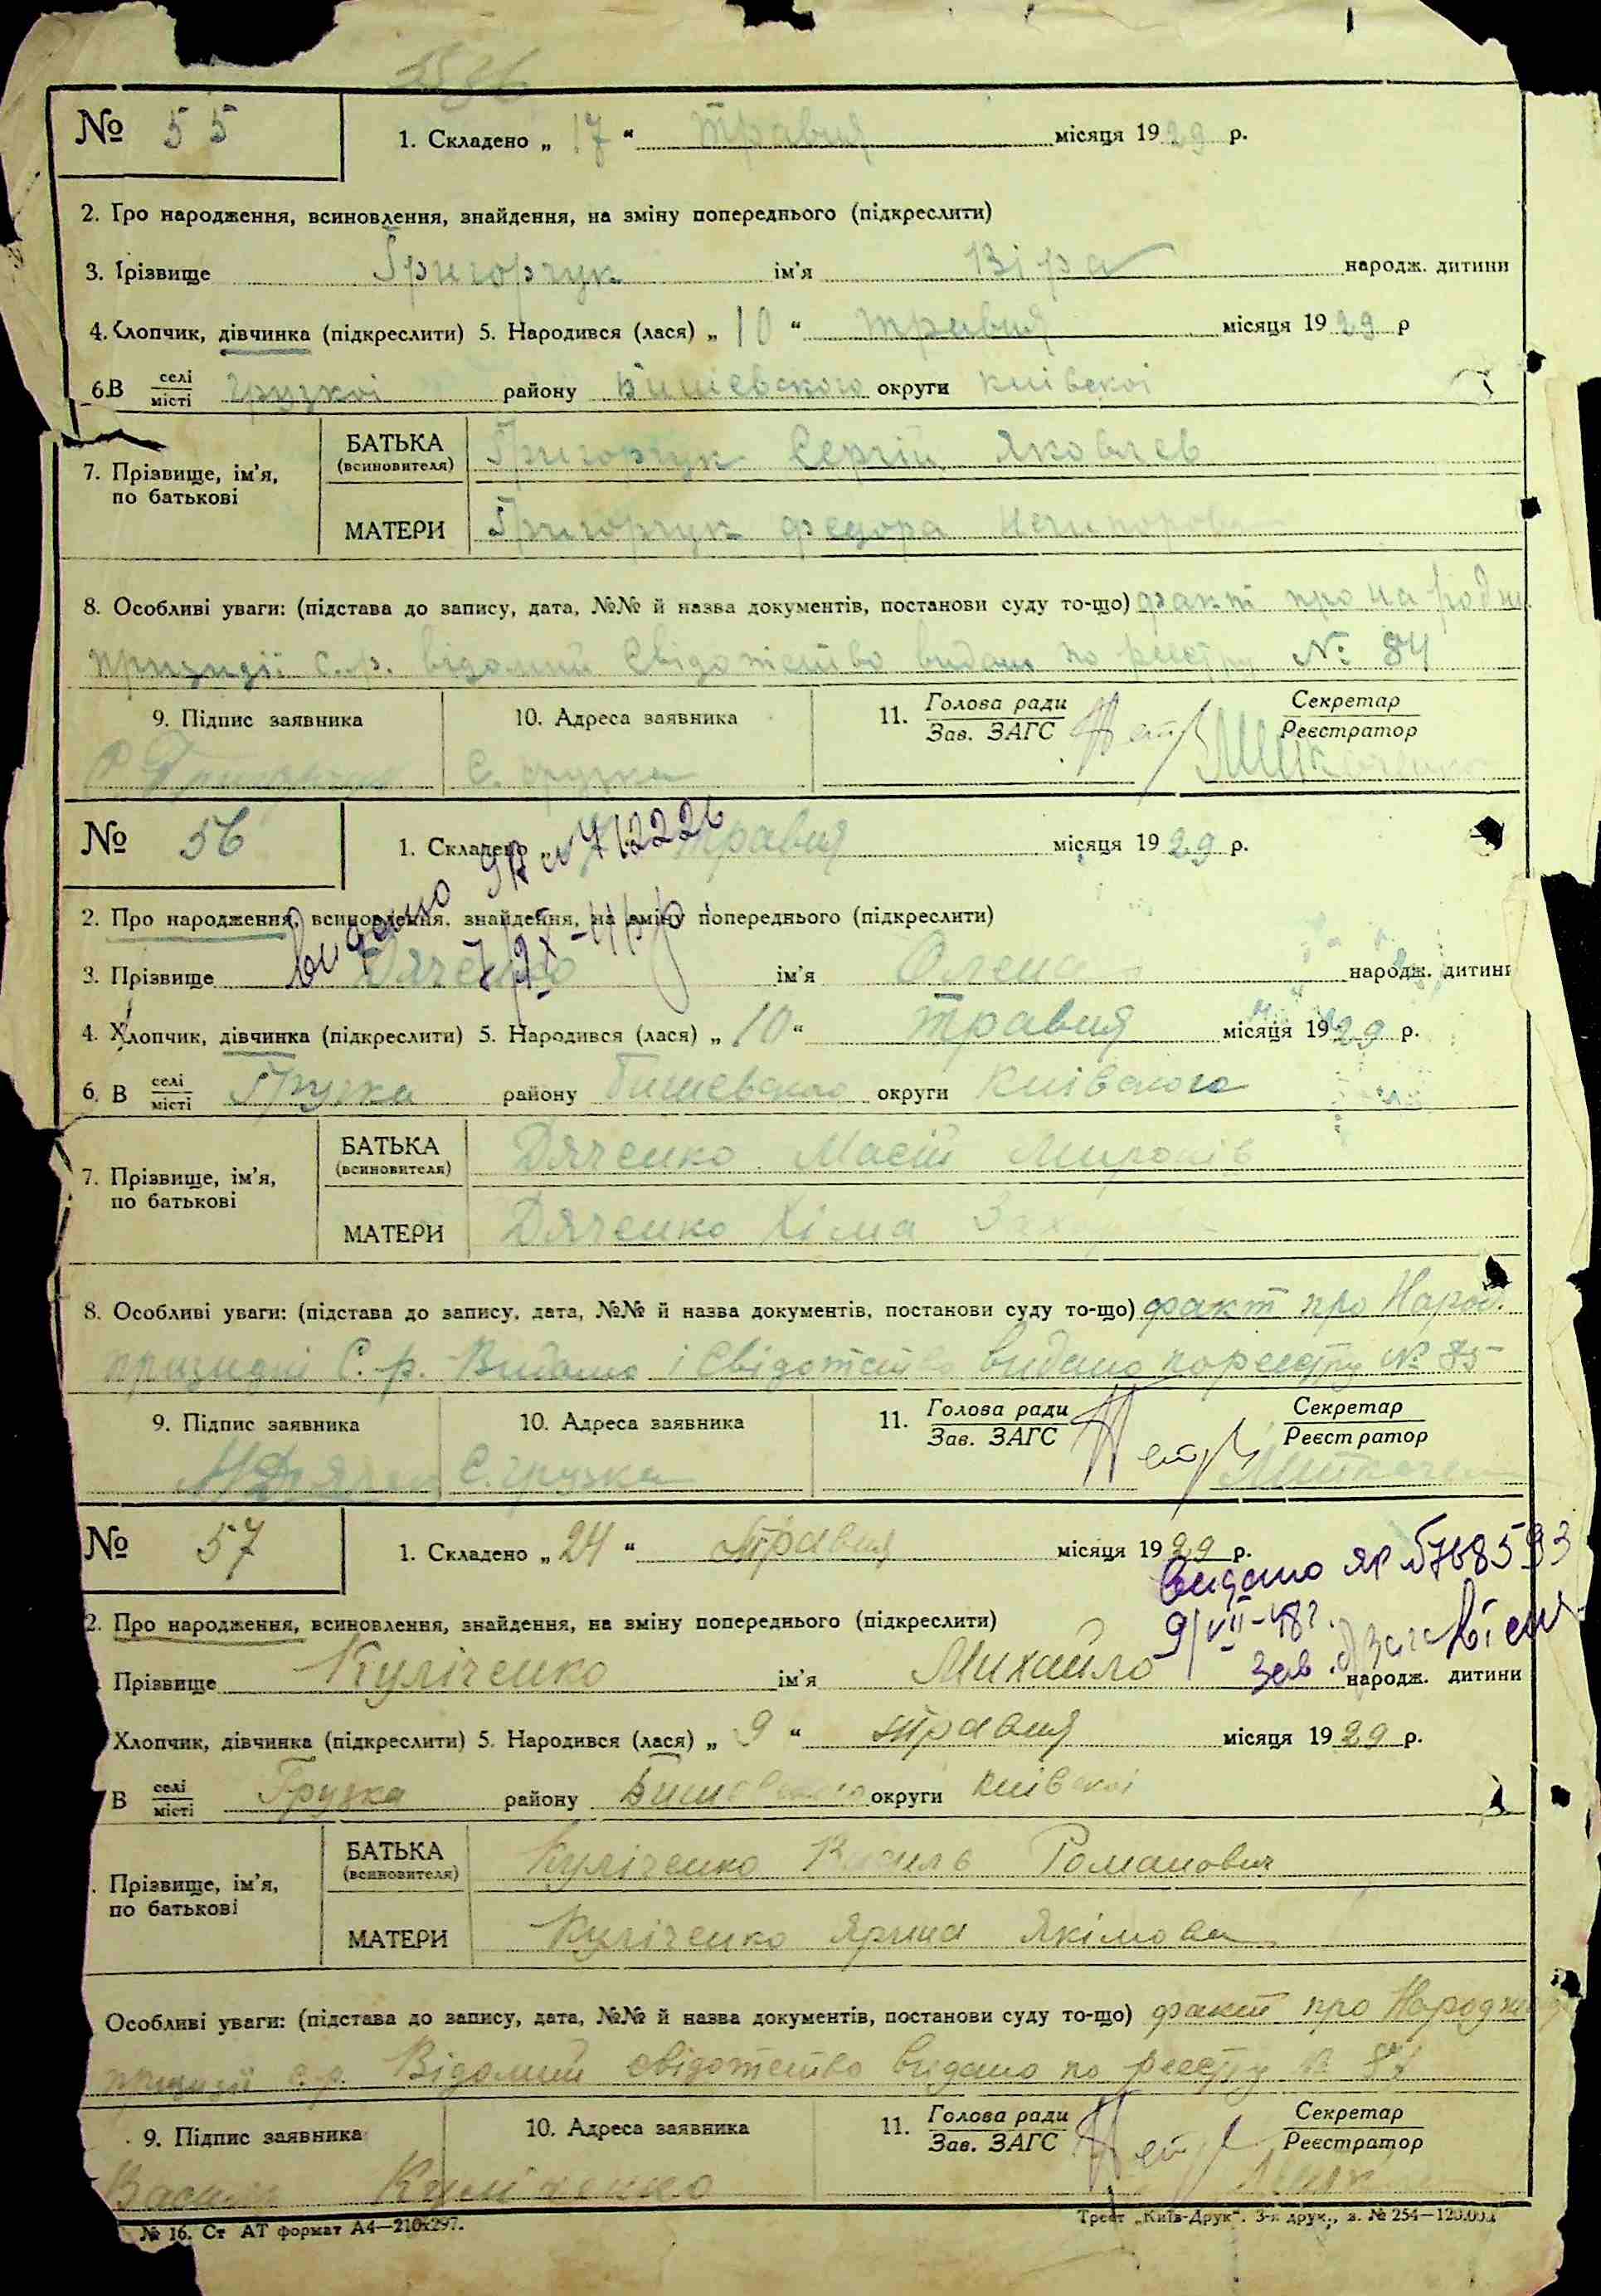 № 55
1. Складено „ 17 “ травня місяця 1929 р.
2. Про народження, всиновлення, знайдення, на зміну попереднього (підкреслити)
3. Прізвище Григорчук ім'я Віра народж. дитини
4. Хлопчик, дівчинка (підкреслити) 5. Народився (лася) „ 10 “ травня місяця 1929 р
6. В селі/місті Грузкоі району Бишевского округи Київскоі
7. Прізвище, ім'я, по батькові
БАТЬКА (всиновителя) Григорчук Сергій Яковлев
МАТЕРИ Григорчук Федора
8. Особливі уваги: (підстава до запису, дата, №№ й назва документів, постанови суду то-що) факт про на родж
призидії с.р. відомий свідотство видано по реєстру № 84
9. Підпис заявника 10. Адреса заявника 11. Голова ради/Зав. ЗАГС Секретар/Реєстратор
С. Грузка
№ 56
1. Складено „ травня місяця 1929 р.
видано
2. Про народження, всиновлення, знайдення, на зміну попереднього (підкреслити)
3. Прізвище Дяченко ім'я Олена народж. дитини
4. Хлопчик, дівчинка (підкреслити) 5. Народився (лася) „ 10 “ травня місяця 1929 р.
6. В селі/місті Грузка району Бишевского округи Київского
7. Прізвище, ім'я, по батькові
БАТЬКА (всиновителя) Дяченко Мосій Миронів
МАТЕРИ Дяченко Хіма
8. Особливі уваги: (підстава до запису, дата, №№ й назва документів, постанови суду то-що) факт про Народ.
призидії С. р. Видомо і Свідотство видано по реєстру № 85
9. Підпис заявника 10. Адреса заявника 11. Голова ради/Зав. ЗАГС Секретар/Реєстратор
С. Грузка
№ 57
1. Складено „ 24 “ травня місяця 1929 р.
видано
2. Про народження, всиновлення, знайдення, на зміну попереднього (підкреслити)
9/VII-48г.
Прізвище Куліченко ім'я Михайло народж. дитини
Зав.
Хлопчик, дівчинка (підкреслити) 5. Народився (лася) „ 9 “ травня місяця 1929 р.
В селі/місті Грузка району Бишевского округи Київскоі
Прізвище, ім'я, по батькові
БАТЬКА (всиновителя) Куліченко Василь Романович
МАТЕРИ Куліченко Ярина Якімова
Особливі уваги: (підстава до запису, дата, №№ й назва документів, постанови суду то-що) факт про Народже
призидії с.р. Відомий свідотство видано по реєстру № 87
9. Підпис заявника 10. Адреса заявника 11. Голова ради/Зав. ЗАГС Секретар/Реєстратор
Василь Куліченко
№ 16. Ст АТ формат А4—210х297.
Трест „Київ-Друк“. 3-я друк., з. № 254—120.000